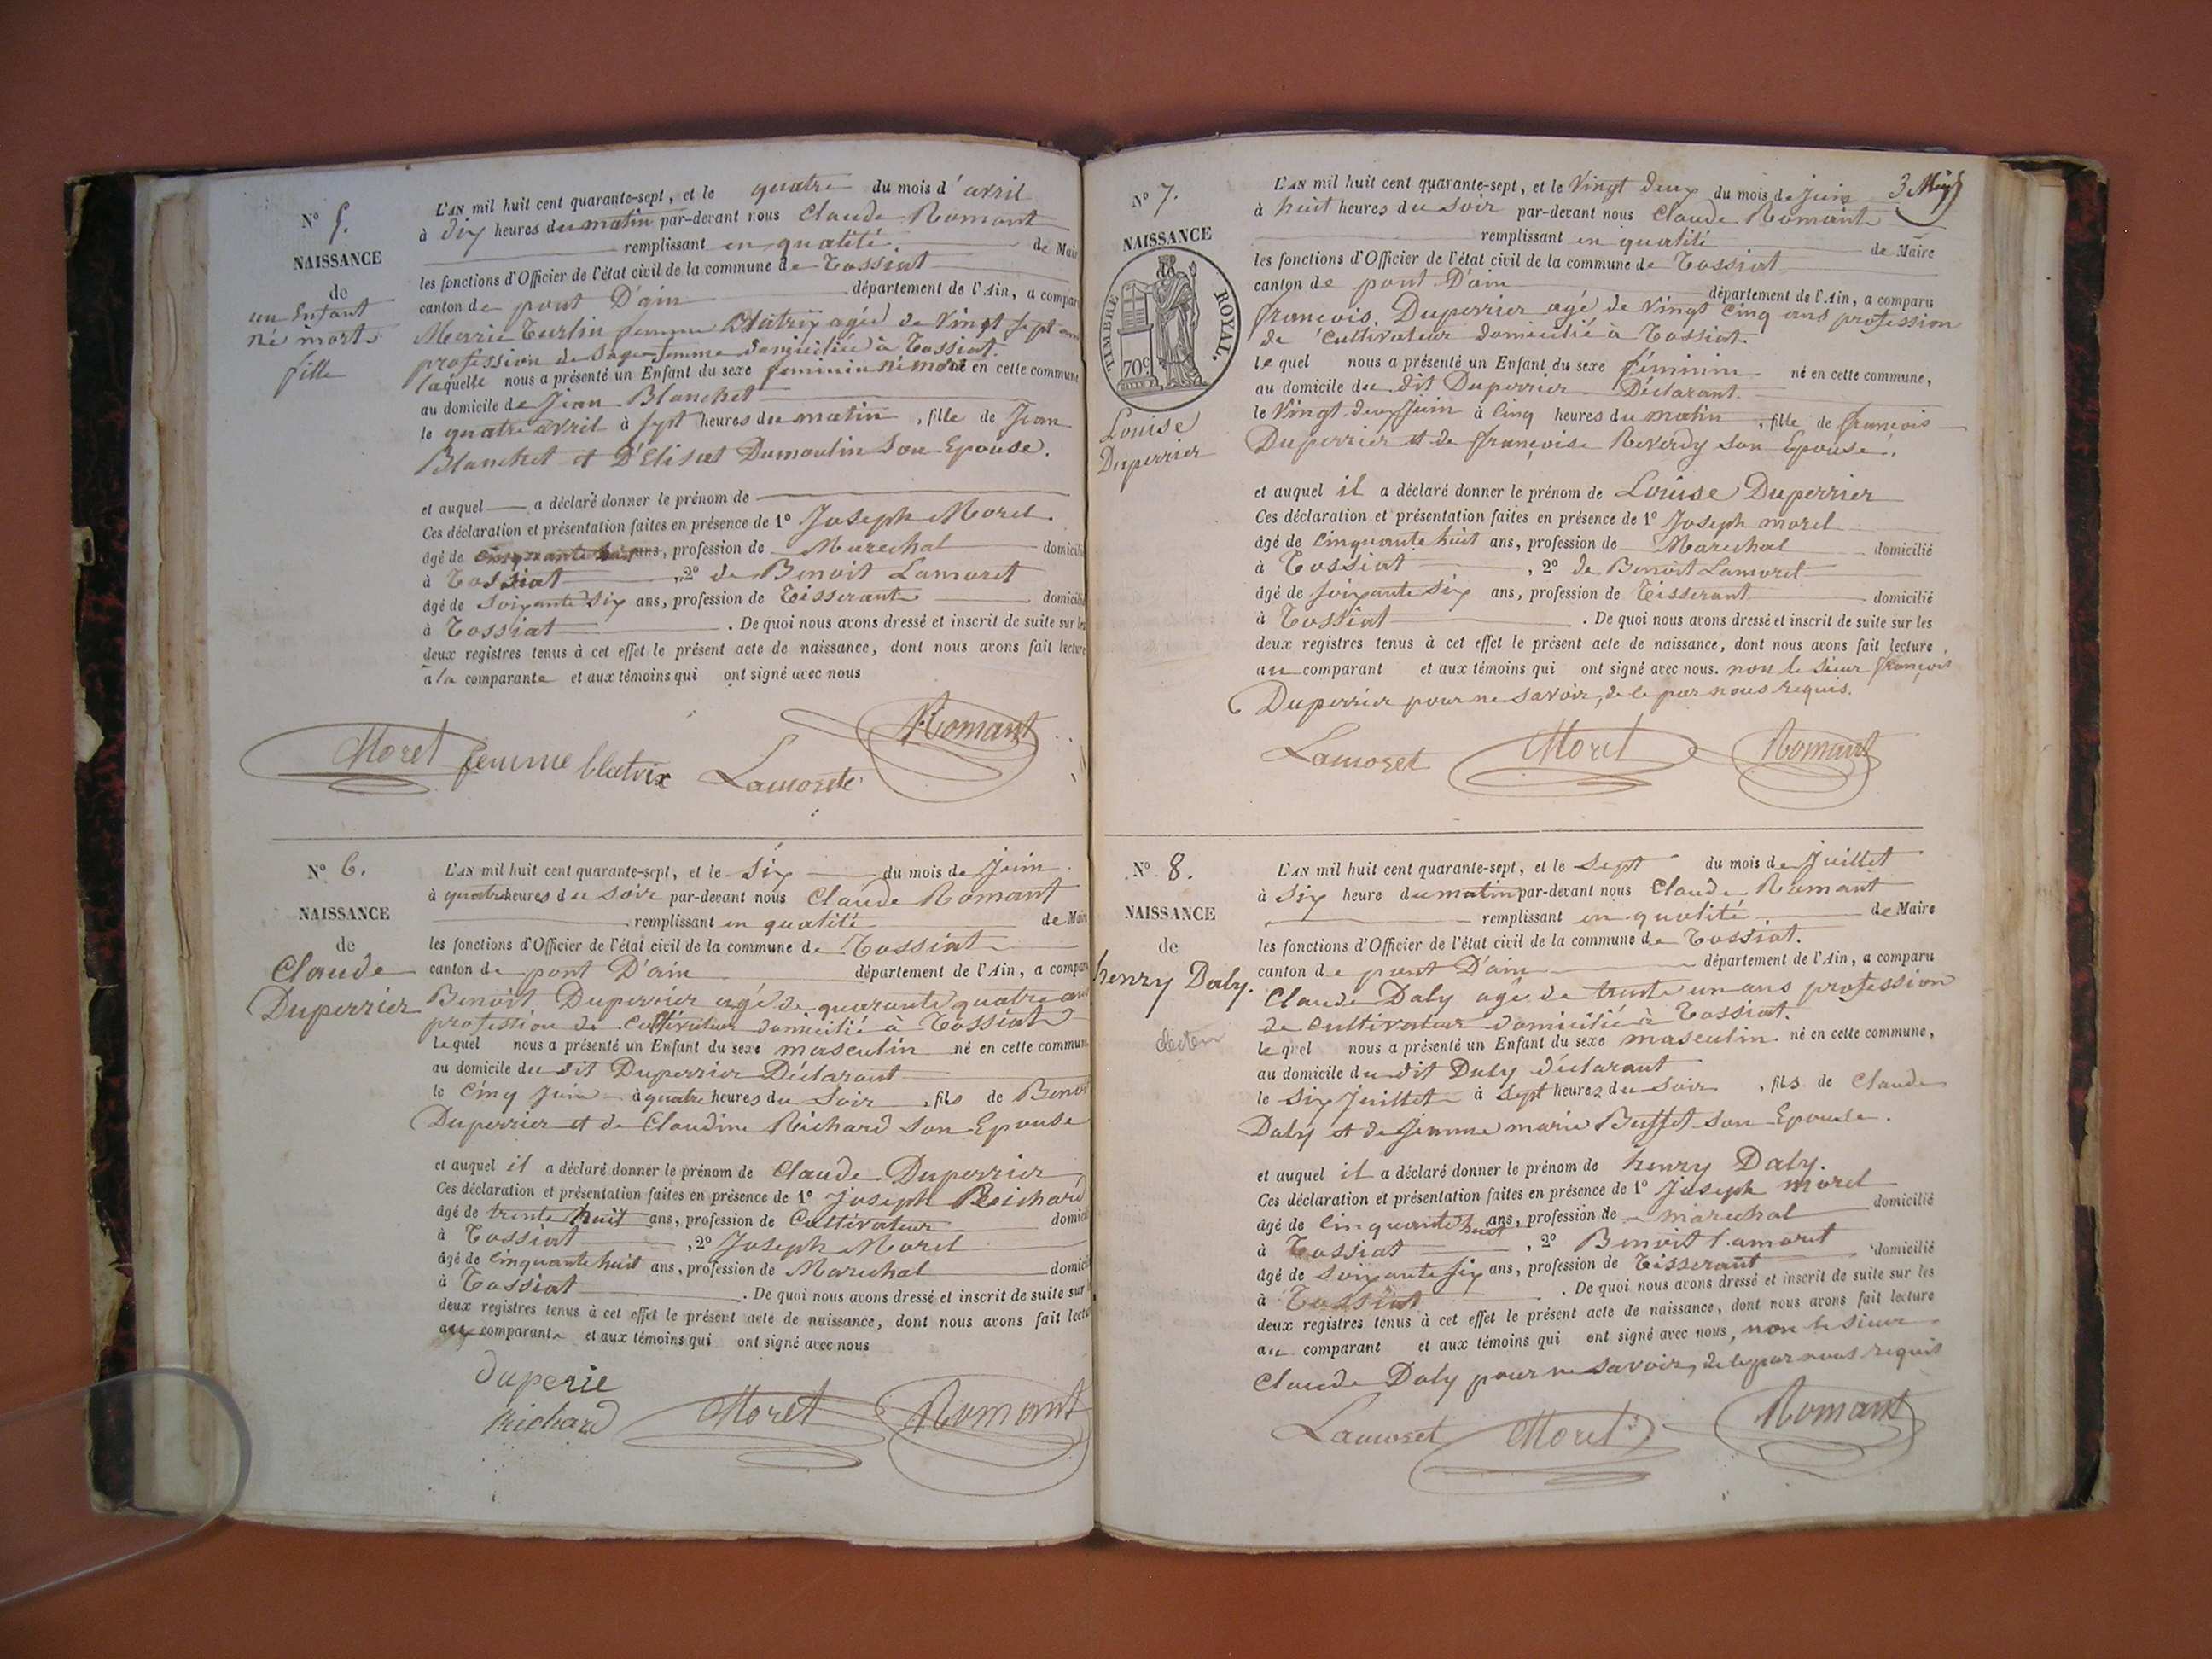 N° 5.
NAISSANCE
de
un Enfant
né mort
fille
L'AN mil huit cent quarante-sept, et le quatre du mois d'avril
à dix heures du matin par-devant nous Claude Romant
remplissant en qualité de Maire
les fonctions d'Officier de l'état civil de la commune de Tossiat
canton de pont D'ain département de l'Ain, a compar
Marie Turlin femme Blatrix agée de Vingt sept ans
profession de Sage-femme domiciliée à Tossiat.
laquelle nous a présenté un Enfant du sexe feminin né mort en cette commune
au domicile de Jean Blanchet
le quatre avril à sept heures du matin, fille de Jean
Blanchet et D'Elisat Dumoulin Son Epouse.
et auquel a déclaré donner le prénom de
Ces déclaration et présentation faites en présence de 1° Joseph Morel.
âgé de cinquante huit ans, profession de Marechal domicili
à Tossiat, 2° de Benoit Lamoret
âgé de Soixante Six ans, profession de Tisserant domicilié
à Tossiat. De quoi nous avons dressé et inscrit de suite sur les
deux registres tenus à cet effet le présent acte de naissance, dont nous avons fait lecture
à la comparante et aux témoins qui ont signé avec nous
Morel femme blatrix Lamorete Romant
N° 6.
NAISSANCE
de
Claude
Duperrier
L'AN mil huit cent quarante-sept, et le Six du mois de Juin
à quatre heures du Soir par-devant nous Claude Romant
remplissant en qualité de Mair
les fonctions d'Officier de l'état civil de la commune de Tossiat
canton de pont D'ain département de l'Ain, a compar
Benoit Duperrier agé de quarante quatre ans
profession de Cultivateur domicilié à Tossiat
lequel nous a présenté un Enfant du sexe masculin né en cette commun
au domicile du dit Duperrier Déclarant
le Cinq Juin à quatre heures du Soir, fils de Benoit
Duperrier et de Claudine Richard Son Epouse
et auquel il a déclaré donner le prénom de Claude Duperrier
Ces déclaration et présentation faites en présence de 1° Joseph Reichard
âgé de trente huit ans, profession de Cultivateur domici
à Tossiat, 2° Joseph Morel
âgé de Cinquante huit ans, profession de Marechal domici
à Tossiat. De quoi nous avons dressé et inscrit de suite sur
deux registres tenus à cet effet le présent acte de naissance, dont nous avons fait lectu
aux comparants et aux témoins qui ont signé avec nous
duperie
Richard Morel Romant
N° 7.
NAISSANCE
TIMBRE ROYAL.
70c
Louise
Duperrier
L'AN mil huit cent quarante-sept, et le Vingt Deux du mois de Juin
à huit heures du Soir par-devant nous Claude Romant
remplissant en qualité de Maire
les fonctions d'Officier de l'état civil de la commune de Tossiat
canton de pont D'ain département de l'Ain, a comparu
françois Duperrier agé de Vingt Cinq ans profession
de Cultivateur domicilié à Tossiat.
lequel nous a présenté un Enfant du sexe féminin né en cette commune,
au domicile du dit Duperrier Déclarant.
le Vingt deux Juin à Cinq heures du matin, fille de françois
Duperrier et de françoise Reverdy son Epouse.
et auquel il a déclaré donner le prénom de Louise Duperrier
Ces déclaration et présentation faites en présence de 1° Joseph morel
âgé de Cinquante huit ans, profession de Marechal domicilié
à Tossiat, 2° de Benoit Lamoret
âgé de Soixante Six ans, profession de Tisserant domicilié
à Tossiat. De quoi nous avons dressé et inscrit de suite sur les
deux registres tenus à cet effet le présent acte de naissance, dont nous avons fait lecture
au comparant et aux témoins qui ont signé avec nous. non le sieur françois
Duperrier pour ne savoir, de le par nous requis.
Lamoret Morel Romant
N° 8.
NAISSANCE
de
henry Daly.
L'AN mil huit cent quarante-sept, et le Sept du mois de Juillet
à Six heure du matin par-devant nous Claude Romant
remplissant en qualité de Maire
les fonctions d'Officier de l'état civil de la commune de Tossiat.
canton de pont D'ain département de l'Ain, a comparu
Claude Daly agé de trente un ans profession
de Cultivateur domicilié à Tossiat.
lequel nous a présenté un Enfant du sexe masculin né en cette commune,
au domicile du dit Daly déclarant
le Six Juillet à Sept heures du Soir, fils de Claude
Daly et de Jeanne marie Buffet son Epouse.
et auquel il a déclaré donner le prénom de henry Daly.
Ces déclaration et présentation faites en présence de 1° Joseph morel
âgé de Cinquante huit ans, profession de marechal domicilié
à Tossiat, 2° Benoit Lamoret
âgé de Soixante Six ans, profession de Tisserant domicilié
à Tossiat. De quoi nous avons dressé et inscrit de suite sur les
deux registres tenus à cet effet le présent acte de naissance, dont nous avons fait lecture
au comparant et aux témoins qui ont signé avec nous, non le Sieur
Claude Daly pour ne savoir, de le par nous requis
Lamoret Morel Romant